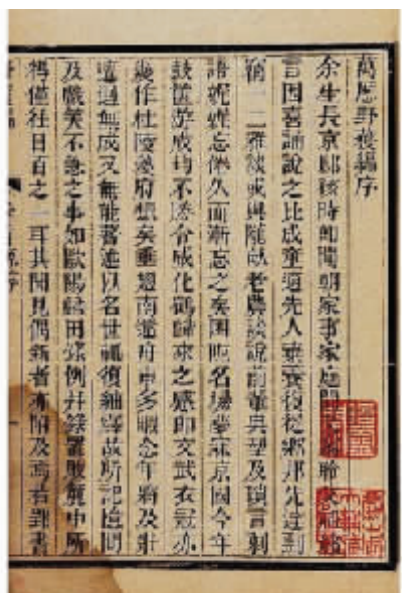 萬厯野獲編序
余生長京邸孩時即聞朝家事家庭間聆父祖緒
言因喜誦說之比成童適先人棄養復從鄉邦先達剽
竊一二雅談或與隴畝老農談說前輩典型及瑣言剩
語娓娓忘倦久而漸忘之矣困阨名場夢寐京國今年
鼓篋游成均不勝令威化鶴歸來之感即文武衣冠亦
幾作杜陵夔府想矣垂翅南還舟車多暇念年將及壯
邅迴無成又無能著述以名世輒復紬繹故所記憶間
及戲笑不急之事如歐陽歸田錄例并錄置敗簏中所
得僅往日百之一耳其聞見偶新者亦附及焉若郢書